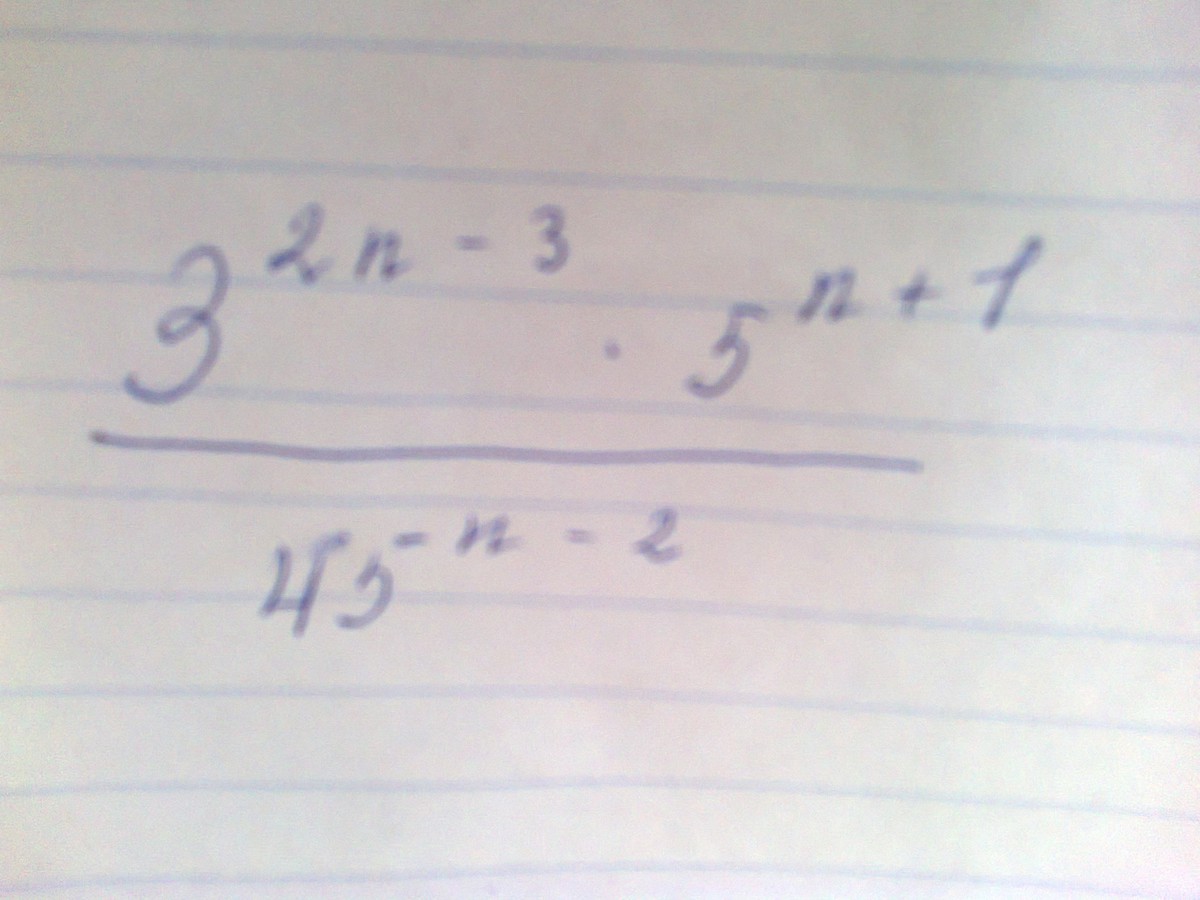 3^{2n-3} · 5^{n+1}
45^{-n-2}